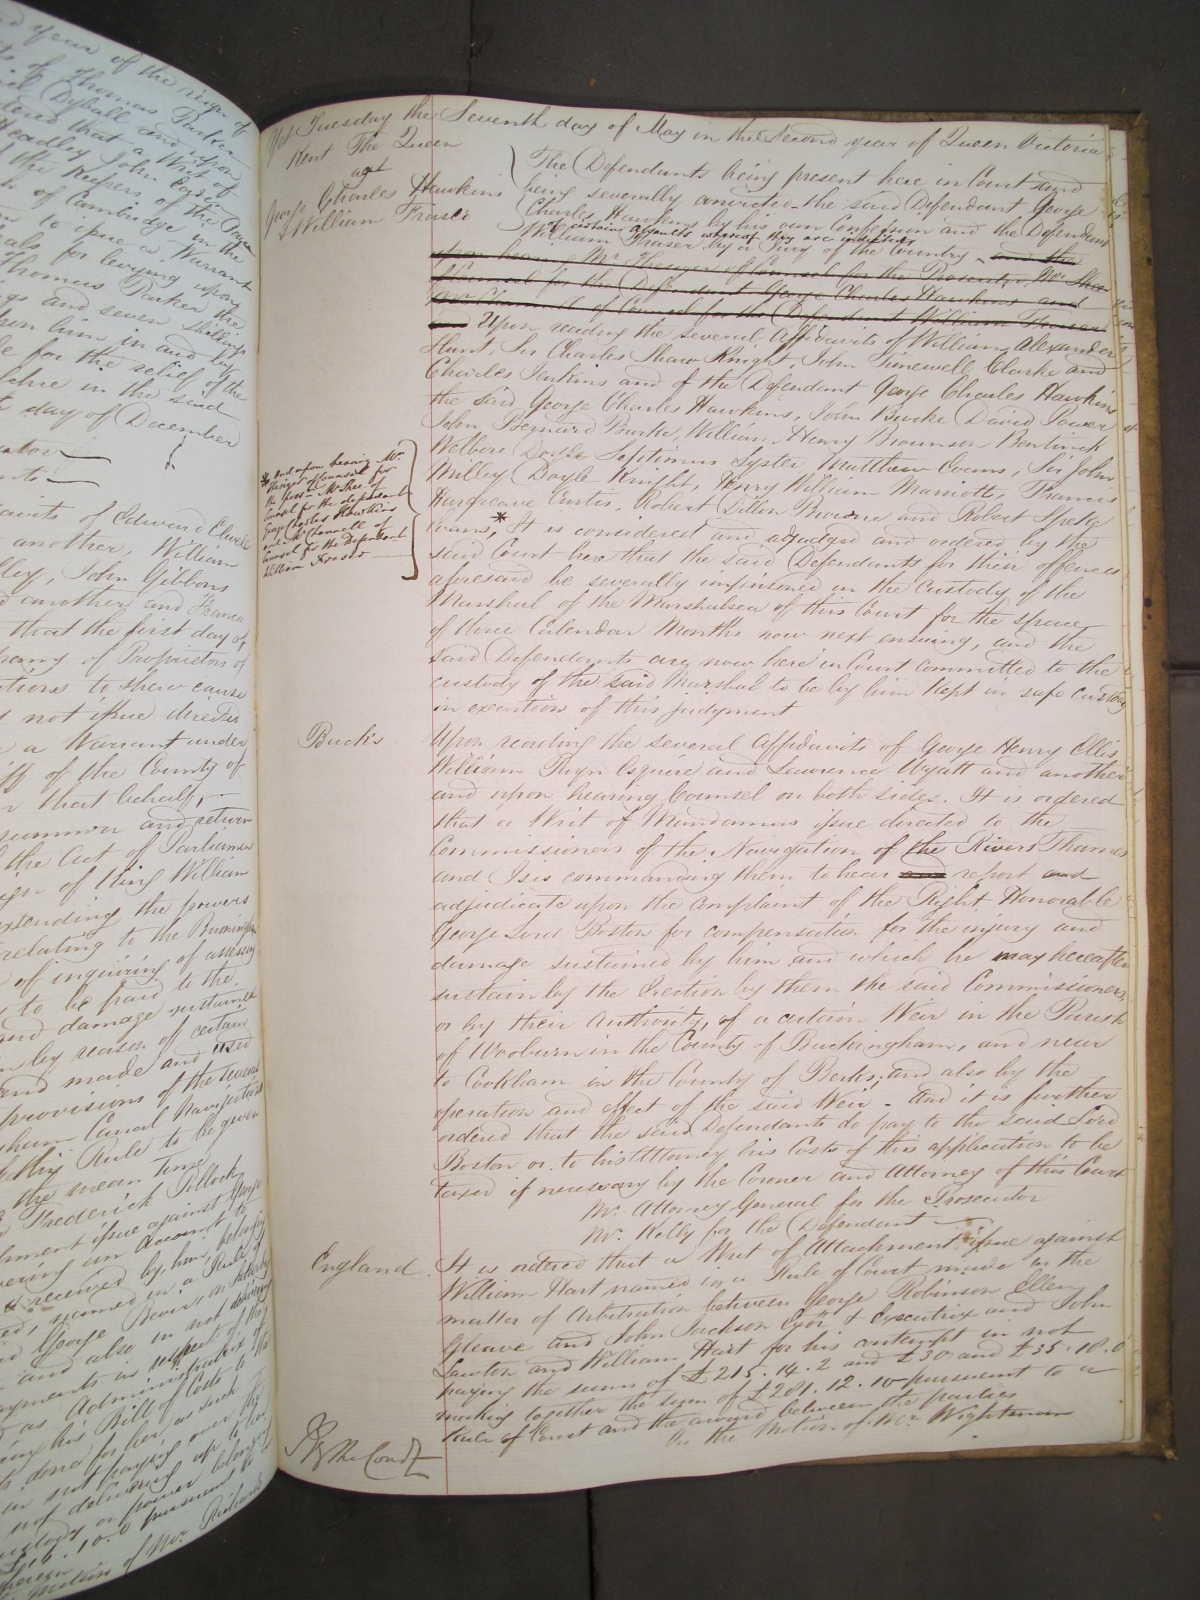 nd year of the reign of
ts of Thomas Parker
el Dyball and upon
dered that a Writ of
Headley John Eason
the Keepers of the Peace
of Cambridge in the
to issue a Warrant
als for levying upon
Thomas Parker the
gs and seven Shillings
pon him in and by
for the relief of the
shire in the said
day of December
avits of Edward Elwell
another, William
lley, John Gibbons
d another and Francis
that the first day of
pany of Proprietors of
ations to shew cause
not issue directed
a Warrant under
iff of the County of
that behalf,
summon and return
the Act of Parliament
ign of King William
xtending the powers
relating to the Birmingham
of inquiring of assessing
to be paid to the
and damage sustained
by reason of certain
and made and used
provisions of the several
ham Canal Navigations
this Rule to be given
the mean time
Frederick Pollock
hment issue against George
ering an Account to
received by him belonging
ed, named in a Rule of
George
and also in not delivering
payments in respect of the
as Administratrix of
ing his Bill of Costs
done for her as such
in not paying over the
not delivering up to
16.10.0 pursuant to
Motion of Mr. Richards
Yet Tuesday the Seventh day of May in the Second year of Queen Victoria
Kent The Queen
agt
George Charles Hawkins
& William Fraser
The Defendants being present here in Court and
being severally convicted the said Defendant George
Charles Hawkins by his own Confession and the Defendant
of certain assaults whereof they are indicted
William Fraser by a Jury of the Country and the
upon hearing Mr. Thesiger of Counsel for the Prosecutor, Mr. Shee
of Counsel for the Defendant George Charles Hawkins and
of Counsel for the Defendant William Fraser
Upon reading the several Affidavits of William Alexander
Hunt, Sir Charles Shaw Knight, John Tunewell Clarke and
Charles Parkins and of the Defendant George Charles Hawkins
the said George Charles Hawkins, John Burke David Power
John Bernard Burke, William Henry Brownson Bentinck
Welbore Doyle Septimus Lyster, Matthew Evans, Sir John
Milley Doyle Knight, Henry William Marriotte, Francis
Hargrave Curtis, Robert Dillon Browne and Robert
Evans,* It is considered and adjudged and ordered by the
said Court here that the said Defendants for their offences
aforesaid be severally imprisoned in the custody of the
Marshal of the Marshalsea of this Court for the space
of three Calendar Months now next ensuing, and the
said Defendants are now here in Court committed to the
custody of the said Marshal to be by him kept in safe custody
in execution of this judgment
* and upon hearing Mr.
Thesiger of Counsel for
the prosn Mr. Shee of
Counsel for the defendant
George Charles Hawkins
and Mr. Channell of
Counsel for the Defendant
William Fraser
Bucks
Upon reading the several Affidavits of George Henry Ellis,
William Thyn Esquire and Lawrence Wyatt and another
and upon hearing Counsel on both sides. It is ordered
that a Writ of Mandamus issue directed to the
Commissioners of the Navigation of the Rivers Thames
and Isis commanding them to hear and report and
adjudicate upon the complaint of the Right Honorable
George Lord Boston for compensation for the injury and
damage sustained by him and which he may hereafter
sustain by the Erection by them the said Commissioners,
or by their Authority, of a certain Weir in the Parish
of Wooburn in the County of Buckingham, and near
to Cookham in the County of Berks; and also by the
operation and effect of the said Weir - And it is further
ordered that the said Defendants do pay to the said Lord
Boston or to his Attorney his Costs of this application to be
taxed if necessary by the Coroner and Attorney of this Court
Mr. Attorney General for the Prosecutor
Mr. Kelly for the Defendant
England
It is ordered that a Writ of Attachment issue against
William Hart named in a Rule of Court made in the
matter of Arbitration between George Robinson Ellen
Gleave and John Jackson Exor & Executrix and John
Lawton and William Hart for his contempt in not
paying the sums of £215.14.2 and £30 and £35.18.0
making together the sum of £281.12.10 pursuant to a
Rule of Court and the award between the parties
On the Motion of Mr. Wightman
By the Court